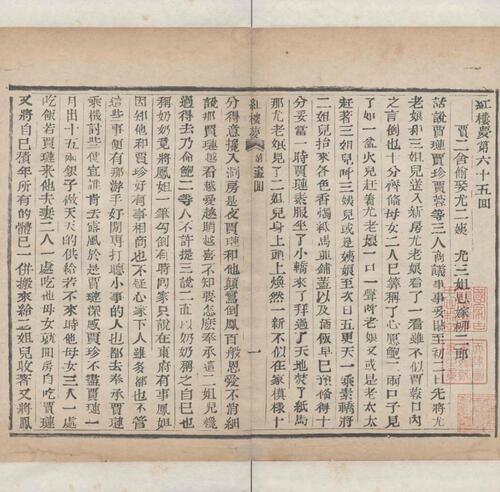 紅樓夢第六十五回
賈二舍偷娶尤二姨 尤三姐思嫁柳二郎
話說賈璉賈珍賈蓉等三人商議事事妥貼至初二日先將尤
老娘和三姐兒送入新房尤老娘看了一看雖不似賈蓉口內
之言倒也十分齊備母女二人已算稱了心愿鮑二兩口子見
了如一盆火兒赶着尤老娘一口一聲叫老娘又或是老太太
赶着三姐兒叫三姨兒或是姨娘至次日五更天一乘素轎將
二姐兒抬來各色香燭紙馬並鋪蓋以及酒飯早已預備得十
分妥當一時賈璉素服坐了小轎來了拜過了天地焚了紙馬
那尤老娘見了二姐兒身上頭上煥然一新不似在家模樣十
紅樓夢 第 回 一
分得意攙入洞房是夜賈璉和他顛鸞倒鳳百般恩愛不消細
說那賈璉越看越愛越瞧越喜不知要怎麽奉承這二姐兒纔
過得去乃命鮑二等人不許提三說二直以奶奶稱之自己也
稱奶奶竟將鳳姐一筆勾倒有時回家只說在東府有事鳳姐
因知他和賈珍好有事相商也不疑心家下人雖多都也不管
這些事便有那游手好閒專打聽小事的人也都去奉承賈璉
乘機討些便宜誰肯去露風於是賈璉深感賈珍不盡賈璉一
月出十五兩銀子做天天的供給若不來時他母女三人一處
吃飯若賈璉來他夫妻二人一處吃他母女就回房自吃賈璉
又將自己積年所有的體己一併搬來給二姐兒收著又將鳳